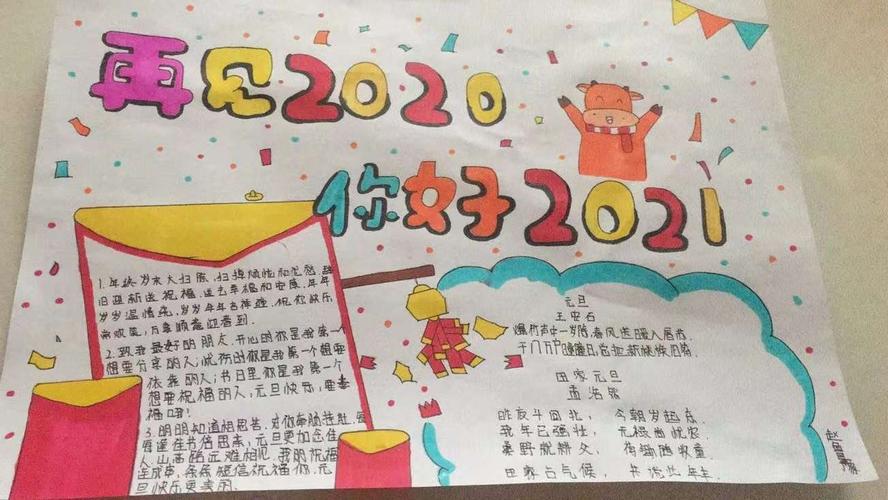 再见2020
你好2021
1. 年终岁末大扫除,扫掉烦恼和忧愁,辞
旧迎新送祝福,送去幸福和安康,年年
岁岁温情在,岁岁年年吉祥绕,祝你快乐
常欢笑,万事顺意迎春到.
2. 致我最好的朋友.开心时你是我第一个
想要分享的人;忧伤时你是我第一个想要
依靠的人;节日里你是我第一个
想要祝福的人,元旦快乐,要幸
福哦!
3. 明明知道相思苦,对你牵肠挂肚,
每逢佳节倍思亲,元旦更加念佳
人,山高路远难相见,我的祝福
连成串,条条短信祝福你,元
旦快乐更美丽.
元旦
王安石
爆竹声中一岁除春风送暖入屠苏.
千门万户瞳瞳日总把新桃换旧符.
田家元旦
孟浩然
昨夜斗回北, 今朝岁起东
我年已强壮, 无禄尚忧农
桑野就耕父, 荷锄随牧童
田家占气候, 共说此年丰
赵